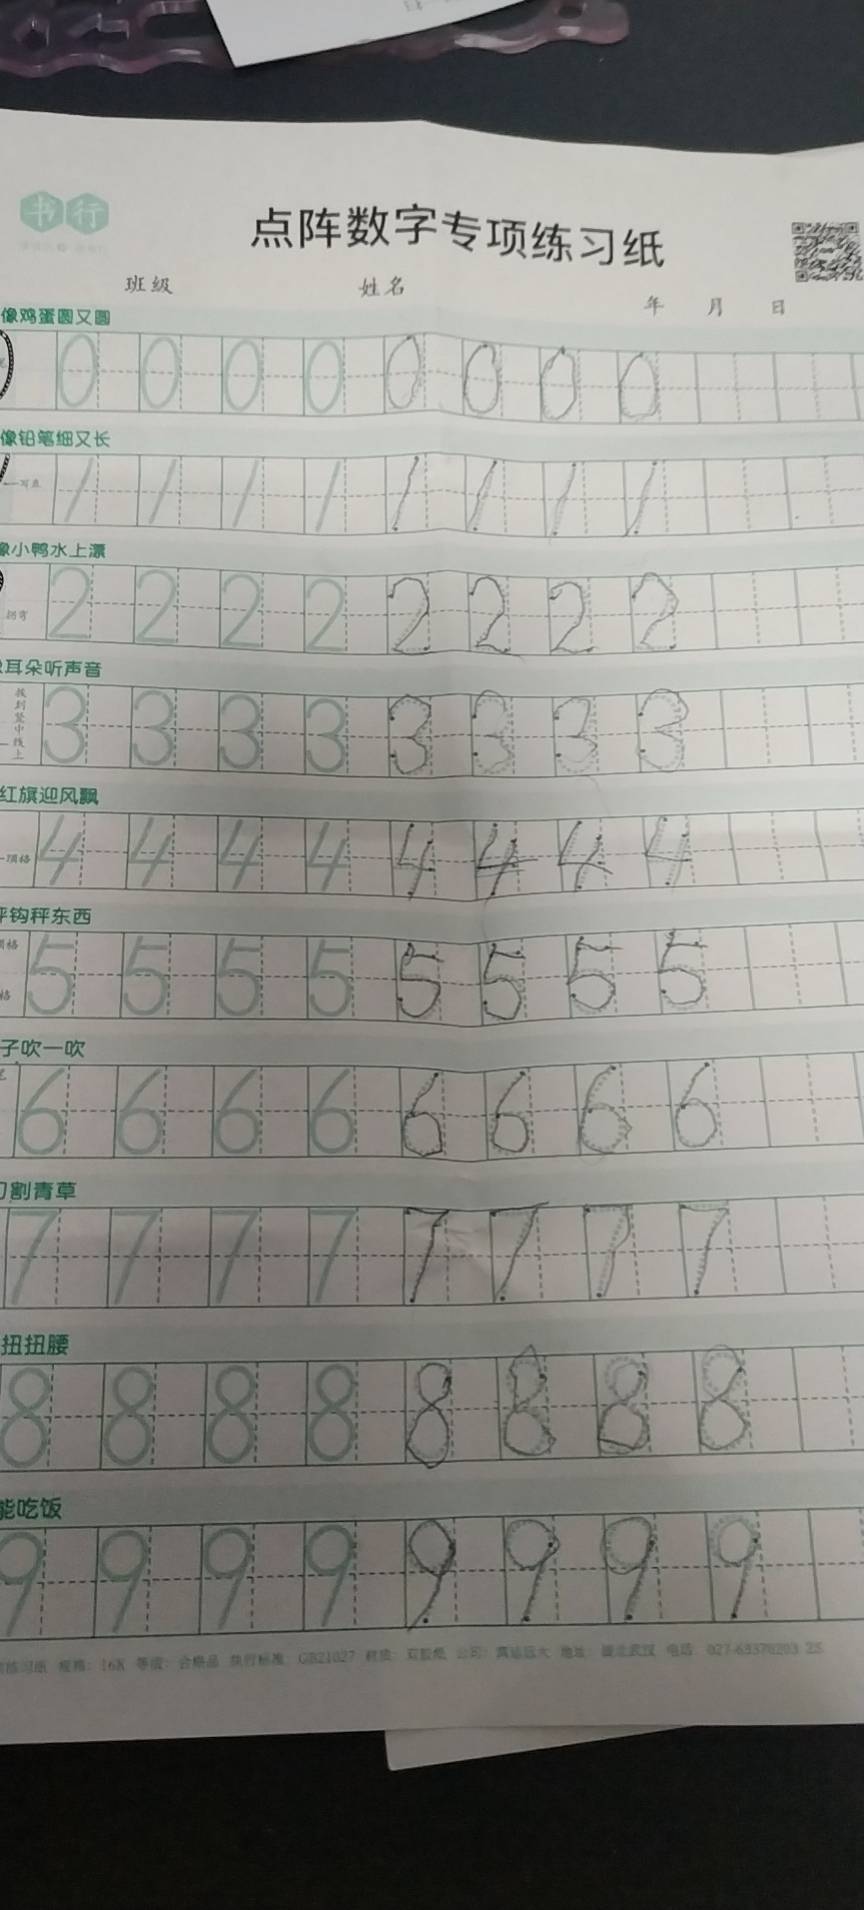 书行
点阵数字专项练习纸
班级 姓名 年 月 日
像鸡蛋圆又圆
0 0 0 0 0 0 0 0
像铅笔细又长
1 1 1 1 1 1 1 1
像小鸭水上漂
拐弯
2 2 2 2 2 2 2 2
耳朵听声音
找到竖中线上
3 3 3 3 3 3 3 3
红旗迎风飘
顶格
4 4 4 4 4 4 4 4
秤钩秤东西
5 5 5 5 5 5 5 5
子吹一吹
6 6 6 6 6 6 6 6
割青草
7 7 7 7 7 7 7 7
扭扭腰
8 8 8 8 8 8 8 8
能吃饭
9 9 9 9 9 9 9 9
练习纸 规格：16K 等级：合格品 执行标准：GB21027 材质：双胶纸 公司： 地址：湖北武汉 电话：